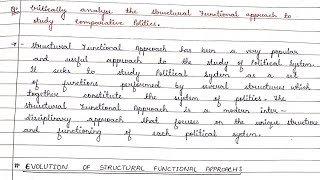 Q:- Critically analyse the structural Functional approach to
study comparative Politics.
→ Structural Functional Approach has been a very popular
and useful approach to the study of Political System.
It seeks to study Political System as a set
of functions performed by several structures which
together constitute the system of politics. The
structural Functional Approach is a modern inter-
disciplinary approach that focuses on the unique structure
and functioning of each political system.
# EVOLUTION OF STRUCTURAL FUNCTIONAL APPROACH: